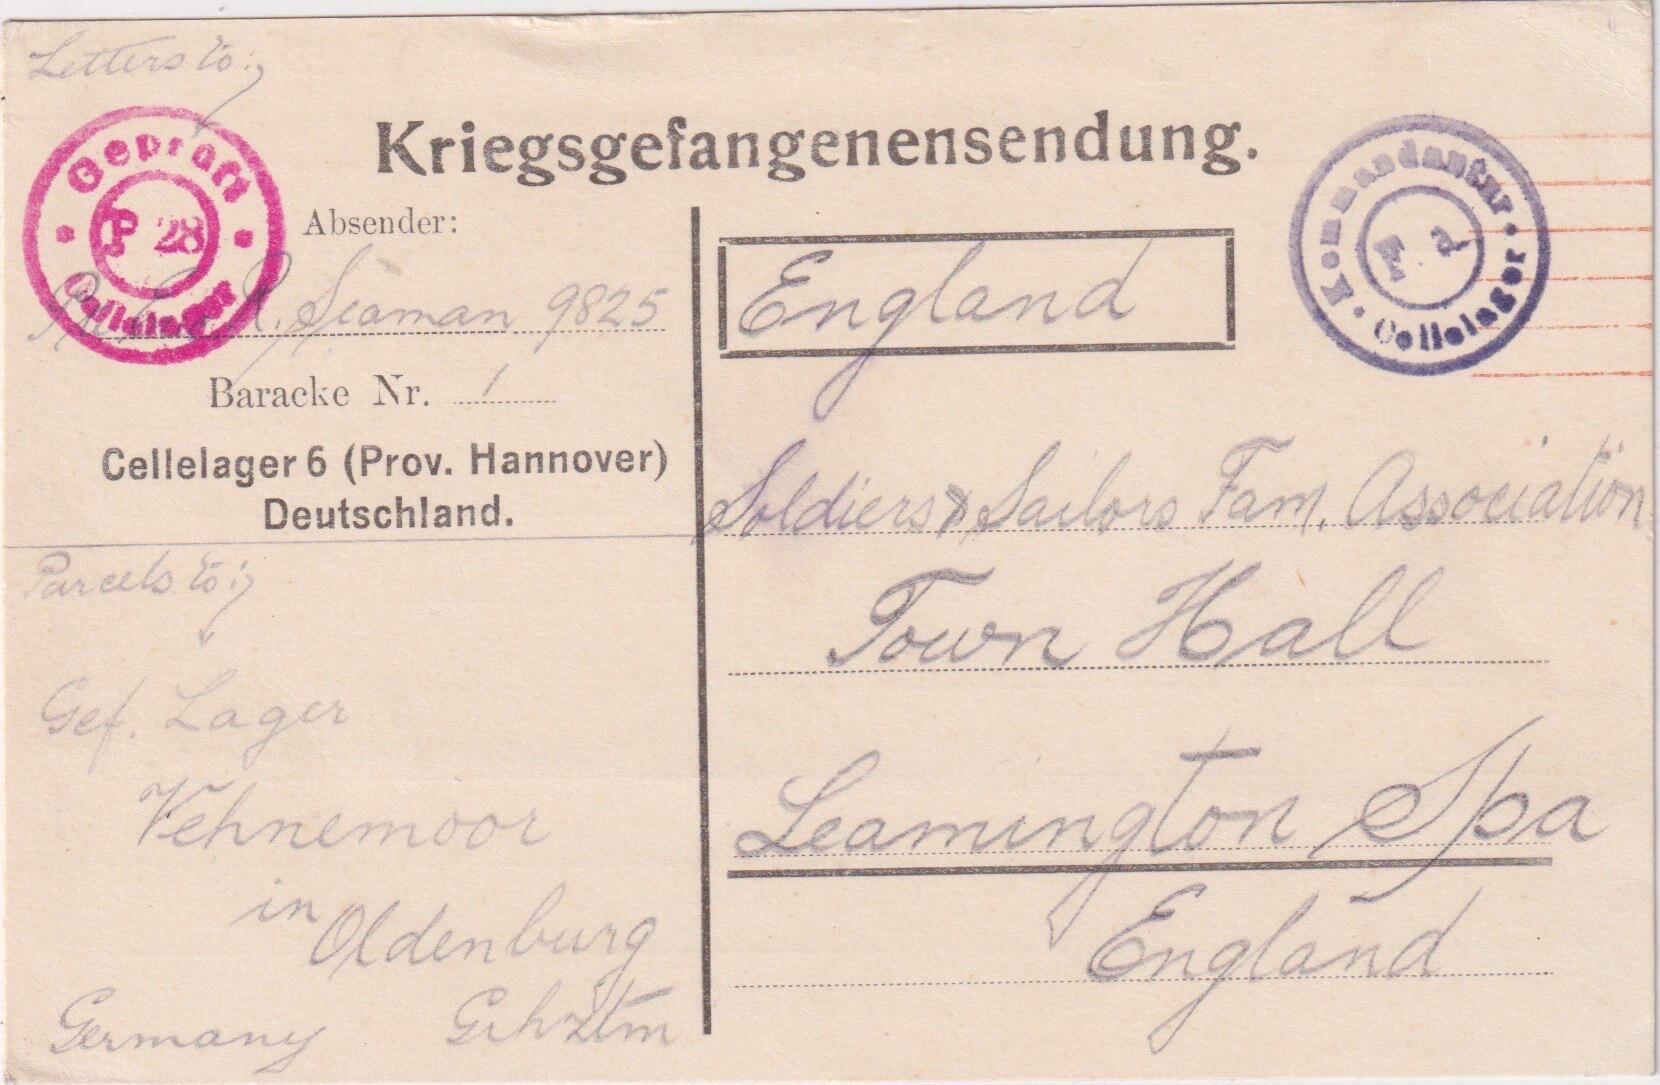 Letters to:
Geprüft
P 28
Cellelager
Kriegsgefangenensendung.
Absender:
R. Seaman 9825
Baracke Nr. 1
Cellelager 6 (Prov. Hannover)
Deutschland.
Parcels to:
Gef. Lager
Vehnemoor
in Oldenburg
Germany
England
Kommandantur
Cellelager
Soldiers & Sailors Fam. Association
Town Hall
Leamington Spa
England